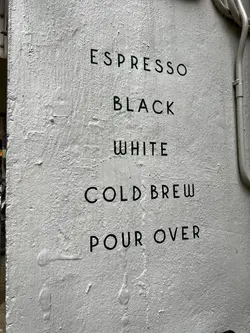 ESPRESSO
BLACK
WHITE
COLD BREW
POUR OVER